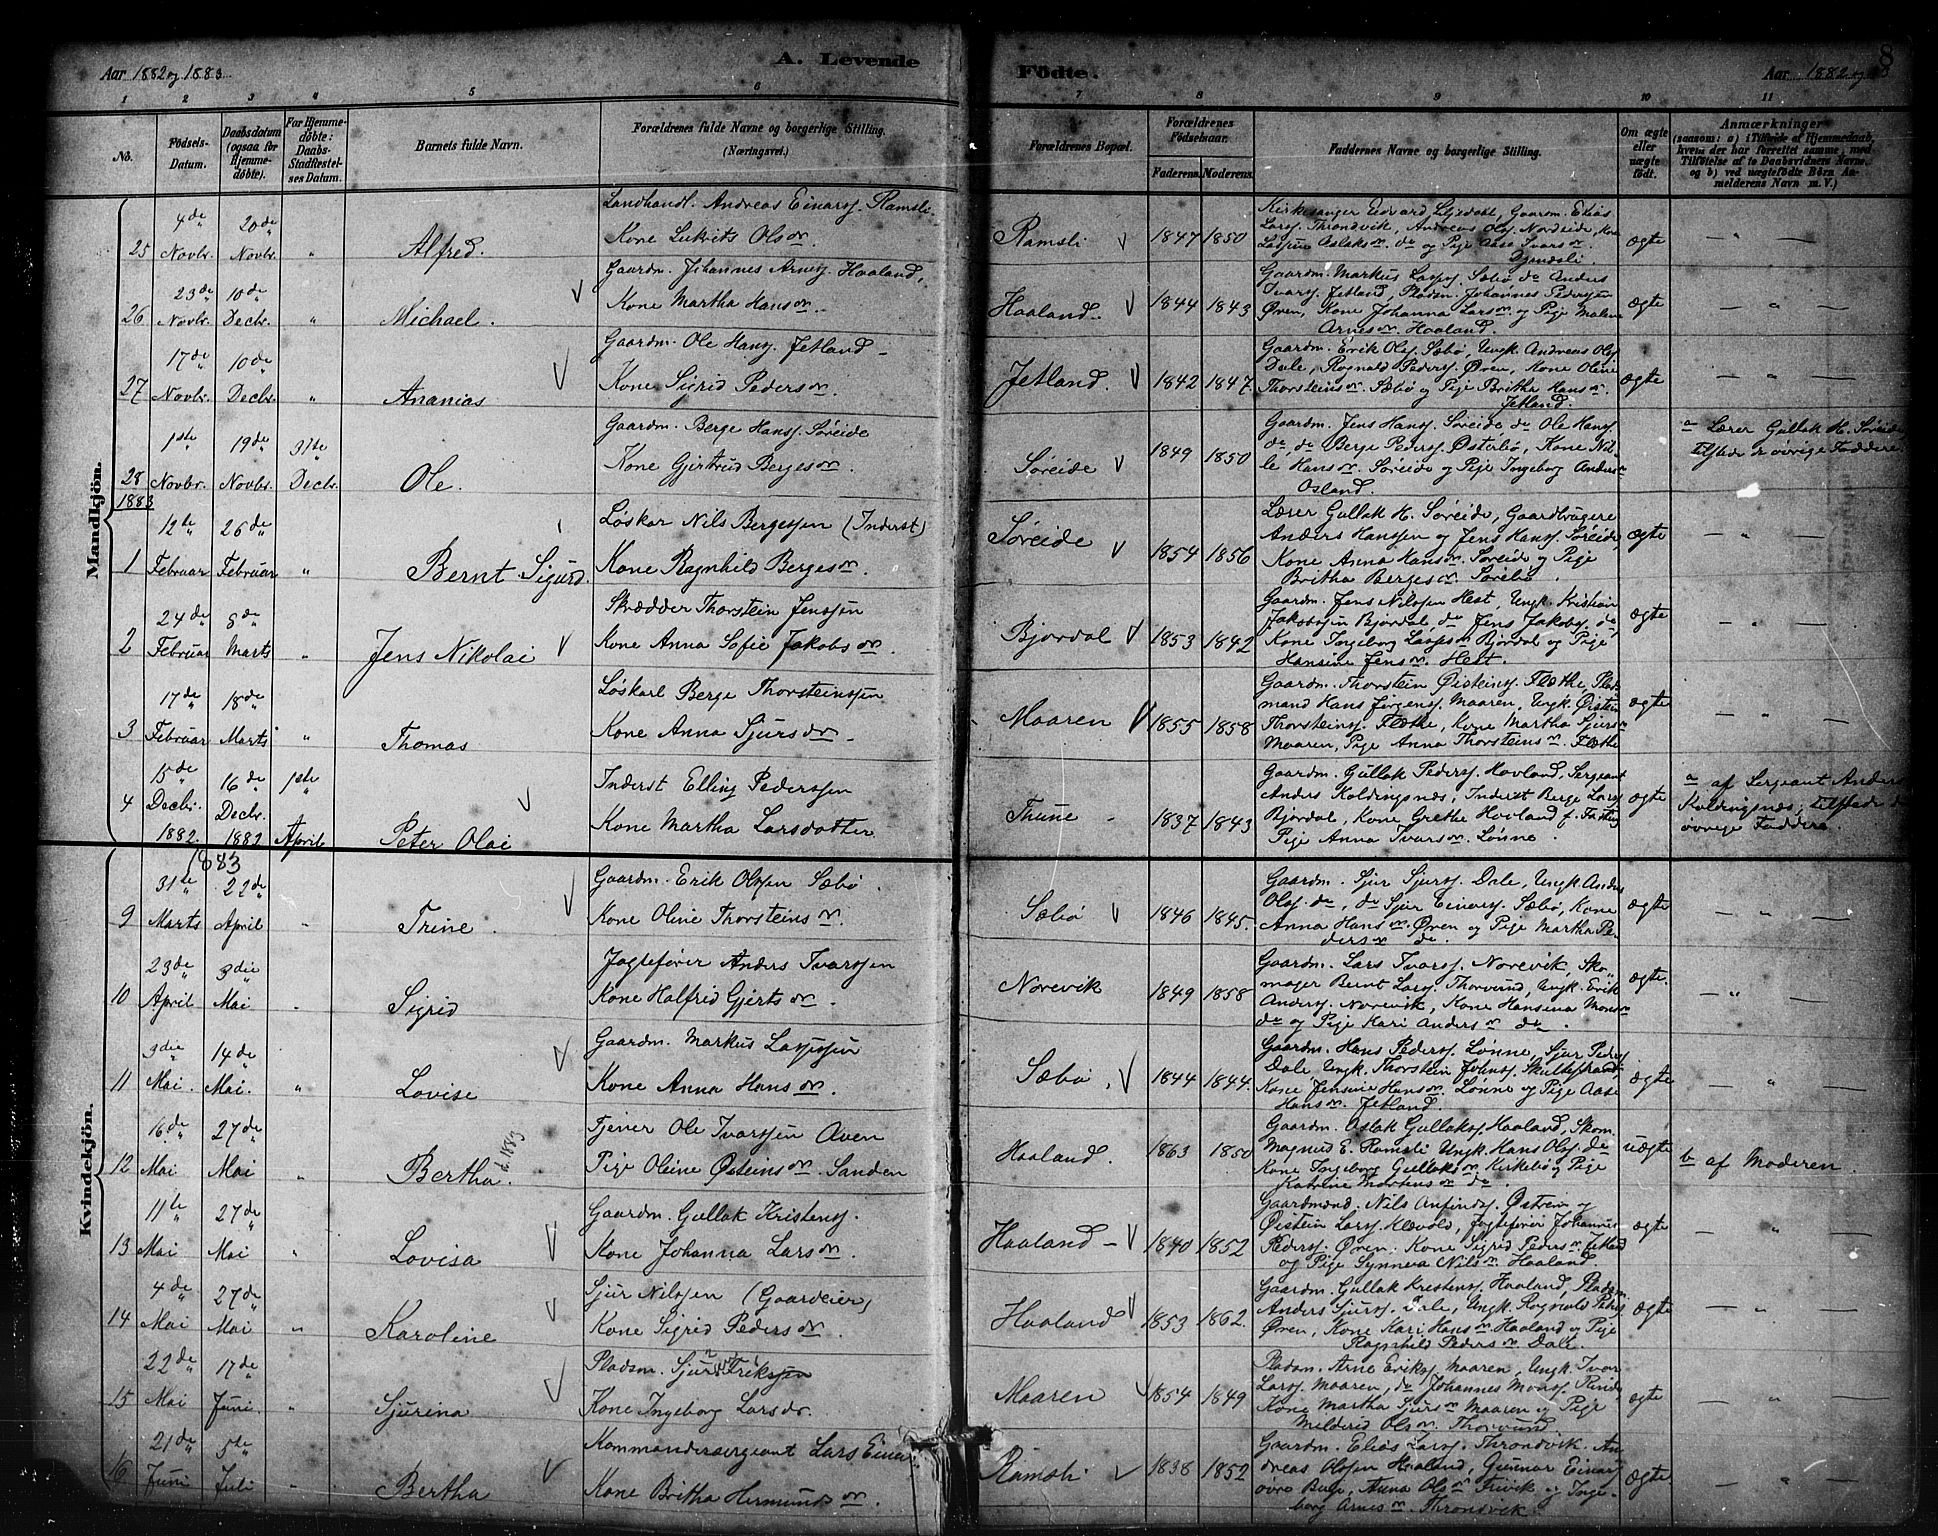 Aar 1882 og 1883.
A. Levende
Födte.
Aar 1882 og 83
8
1 2 3 4 5 6 7 8 9 10 11
No.
Födsels-Datum.
Daabsdatum (ogsaa for Hjemmedöbte).
For Hjemmedöbte: Daabs-Stadfæstelses Datum.
Barnets fulde Navn.
Forældrenes fulde Navne og borgerlige Stilling. (Næringsvei.)
Forældrenes Bopæl.
Forældrenes Födselsaar.
Faderens. Moderens.
Faddernes Navne og borgerlige Stilling.
Om ægte eller uægte födt.
Anmærkninger
(saasom: a) i Tilfælde af Hjemmedaab, hvem der har forrettet samme, med Tilföielse af to Daabsvidners Navne, og b) ved uægtefödte Börn Anmelderens Navn m. V.)
Mandkjön.
25 4de Novbr. 20de Novbr. " Alfred.
Landhandl. Andreas Einarss. Ramsli.
Kone Lukrits Olsdr.
Ramsli 1847 1850
Kirkesanger Edvard Liisdahl, Gaardm. Elias
Larss. Throndvik, Andreas Ols. Nordeide, Kone
Aslaksdr. do og Pige Aase Ivarsdr.
ægte — " —
26 23de Novbr. 10de Decbr. " Michael.
Gaardm. Johannes Arness. Haaland,
Kone Martha Hansdr.
Haaland 1844 1843
Gaardm. Markus Lasses. Sæbø do Anders
Ivars. Jetland, Pladsm. Johannes Pedersen
Øren, Kone Johanna Larsdr. og Pige Malene
Arnesdr. Haaland.
ægte — " —
27 17de Novbr. 10de Decbr. " Ananias
Gaardm. Ole Hanss. Jetland
Kone Sigrid Pedersdr.
Jetland. 1842 1847.
Gaardm. Erik Ols. Sæbø, Ungk. Andreas Ols.
Dale, Rognald Peders. Øren, Kone Oline
Thorsteinsdr. Sæbø og Pige Britha Hansdr.
Jetland.
ægte — " —
28 1ste Novbr. 19de Novbr. 31te Decbr. Ole.
Gaardm. Berge Hanss. Søreide
Kone Gjertrud Bergesdr.
Søreide 1849 1850
Gaardm. Jens Hanss. Søreide do Ole Hanss.
do, do Berge Peders. Østerbø, Kone Nille
Hansdr. Søreide og Pige Ingeborg Andersdr.
Osland.
ægte
a Lærer Gullak H. Søreide
tilstede de øvrige Faddere
1883
1 12te Februar 26de Februar " Bernt Sigurd.
Løskar Nils Bergessen (Inderst)
Kone Ragnhild Bergesdr.
Søreide 1854 1856
Lærer Gullak H. Søreide, Gaardbrugere
Anders Hanssen og Jens Hanss. Søreide,
Kone Anna Hansdr. Søreide og Pige
Britha Bergesdr. Sørebø.
ægte — " —
2 24de Februar 8de Marts " Jens Nikolai
Skrædder Thorstein Jenssen
Kone Anna Sofie Jakobsdr.
Bjordal 1853 1842
Gaardm. Jens Nilssen Hest, Ungk. Kristian
Jakobsen Bjordal, do Jens Jakobs. do,
Kone Ingeborg Larsdr. Bjordal og Pige
Hansine Jensdr. Hest.
ægte — " —
3 17de Februar 18de Marts " Thomas
Løskarl Berge Thorsteinssen
Kone Anna Sjursdr.
Maaren 1855 1858
Gaardm. Thorstein Øisteins. Flæthe Plads-
mand Hans Jørgens. Maaren, Ungk. Øistein
Thorsteins. Flæthe, Kone Martha Sjursdr.
Maaren, Pige Anna Thorsteinsdr. Flæthe
ægte — " —
4 15de Decbr. 1882. 16de Decbr. 1883 1ste April Peter Olai
Inderst Elling Pederssen
Kone Martha Larsdatter
Thune 1837 1843
Gaardm. Gullak Peders. Hovland, Sergeant
Anders Koldingsnæs, Inderst Berge Larss.
Bjordal, Kone Grethe Hovland f.
Pige Anna Ivarsdr. Lønne.
ægte
a af Sergeant Anders
Koldingsnæs; tilstede de
øvrige Faddere.
Kvindekjön.
1883
9 31te Marts 22de April " Trine.
Gaardm. Erik Olssen Sæbø.
Kone Oline Thorsteinsdr.
Sæbø 1846 1845.
Gaardm. Sjur Sjurss. Dale, Ungk. Anders
Ols. do, do Sjur Einars. Sæbø, Kone
Anna Hansdr. Øren og Pige Martha Pe-
dersdr. do.
ægte — " —
10 23de April 3die Mai " Sigrid
Jagtefører Anders Ivarssen
Kone Halfrid Gjertsdr.
Norevik 1849 1858
Gaardm. Lars Ivars. Norevik, Sko-
mager Bernt Larss. Thorvund, Ungk. Erik
Anders. Norevik, Kone Hansina Monsdr.
do og Pige Kari Andersdr. do.
ægte. — " —
11 3die Mai. 14de Mai. " Lovise
Gaardm. Markus Lassesen
Kone Anna Hansdr.
Sæbø. 1844 1844.
Gaardm. Hans Peders. Lønne, Sjur Peders.
Dale Ungk. Thorstein Johns. Skuldestrand
Kone Jensine Hansdr. Lønne og Pige Aase
Hansdr. Jetland.
ægte — " —
12 16de Mai 27de Mai " Bertha. d. 1883
Tjener Ole Ivarssen Øven
Pige Oline Øisteinsdr. Sanden
Haaland. 1863 1850
Gaardm. Aslak Gullaks. Haaland, Skom.
Magnus E. Ramsli Ungk. Hans Ols. do
Kone Ingeborg Gullaksdr. Kirkebø og Pige
Katrine Mortensdr. do.
uægte
b af Moderen.
13 11te Mai 27de Mai " Lovisa
Gaardm. Gullak Kristens.
Kone Johanna Larsdr.
Haaland 1840 1852
Gaardmænd. Nils Anfinds. Østrem og
Øistein Larss. Klævold, Jagtefører Johannes
Peders. Øren, Kone Sigrid Pedersdr. Jetland
og Pige Synneva Nilsdr. Haaland.
ægte — " —
14 4de Mai 27de Mai " Karoline
Sjur Nilssen (Gaardeier)
Kone Sigrid Pedersdr.
Haaland 1853 1862.
Gaardm. Gullak Kristens. Haaland, Pladsm.
Anders Sjurs. Dale, Ungk. Rognald Peders.
Øren, Kone Kari Hansdr. Haaland og Pige
Ragnhild Pedersdr. Dale.
ægte — " —
15 22de Mai 17de Juni. " Sjurina
Pladsm. Sjur Erikssen
Kone Ingeborg Larsdr.
Maaren 1854 1849
Pladsm. Arne Eriks. Maaren, Ungk. Ivar
Larss. Maaren, do Johannes Monss. Rinde
Kone Martha Sjursdr. Maaren og Pige
Melderid Olsdr. Thorvund
ægte — " —
16 21de Juni 5te Juli " Bertha
Kommandersergeant Lars Einars.
Kone Britha Hermundsdr.
Ramsli 1838 1852
Gaardm. Elias Larss. Throndvik, An-
dreas Olssen Haaland, Gunnar Einars.
øvre Bølge, Anna Olsdr. Fivik og Inge-
borg Arnesdr. Throndvik
ægte — " —